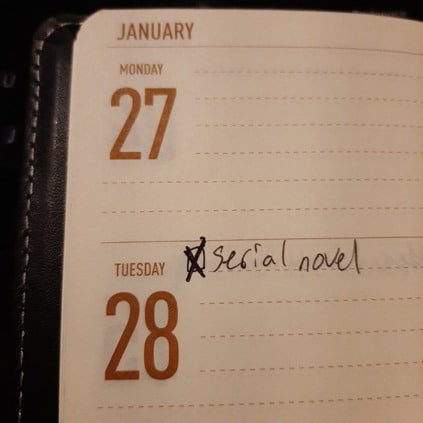 JANUARY
MONDAY
27
TUESDAY
serial novel
28